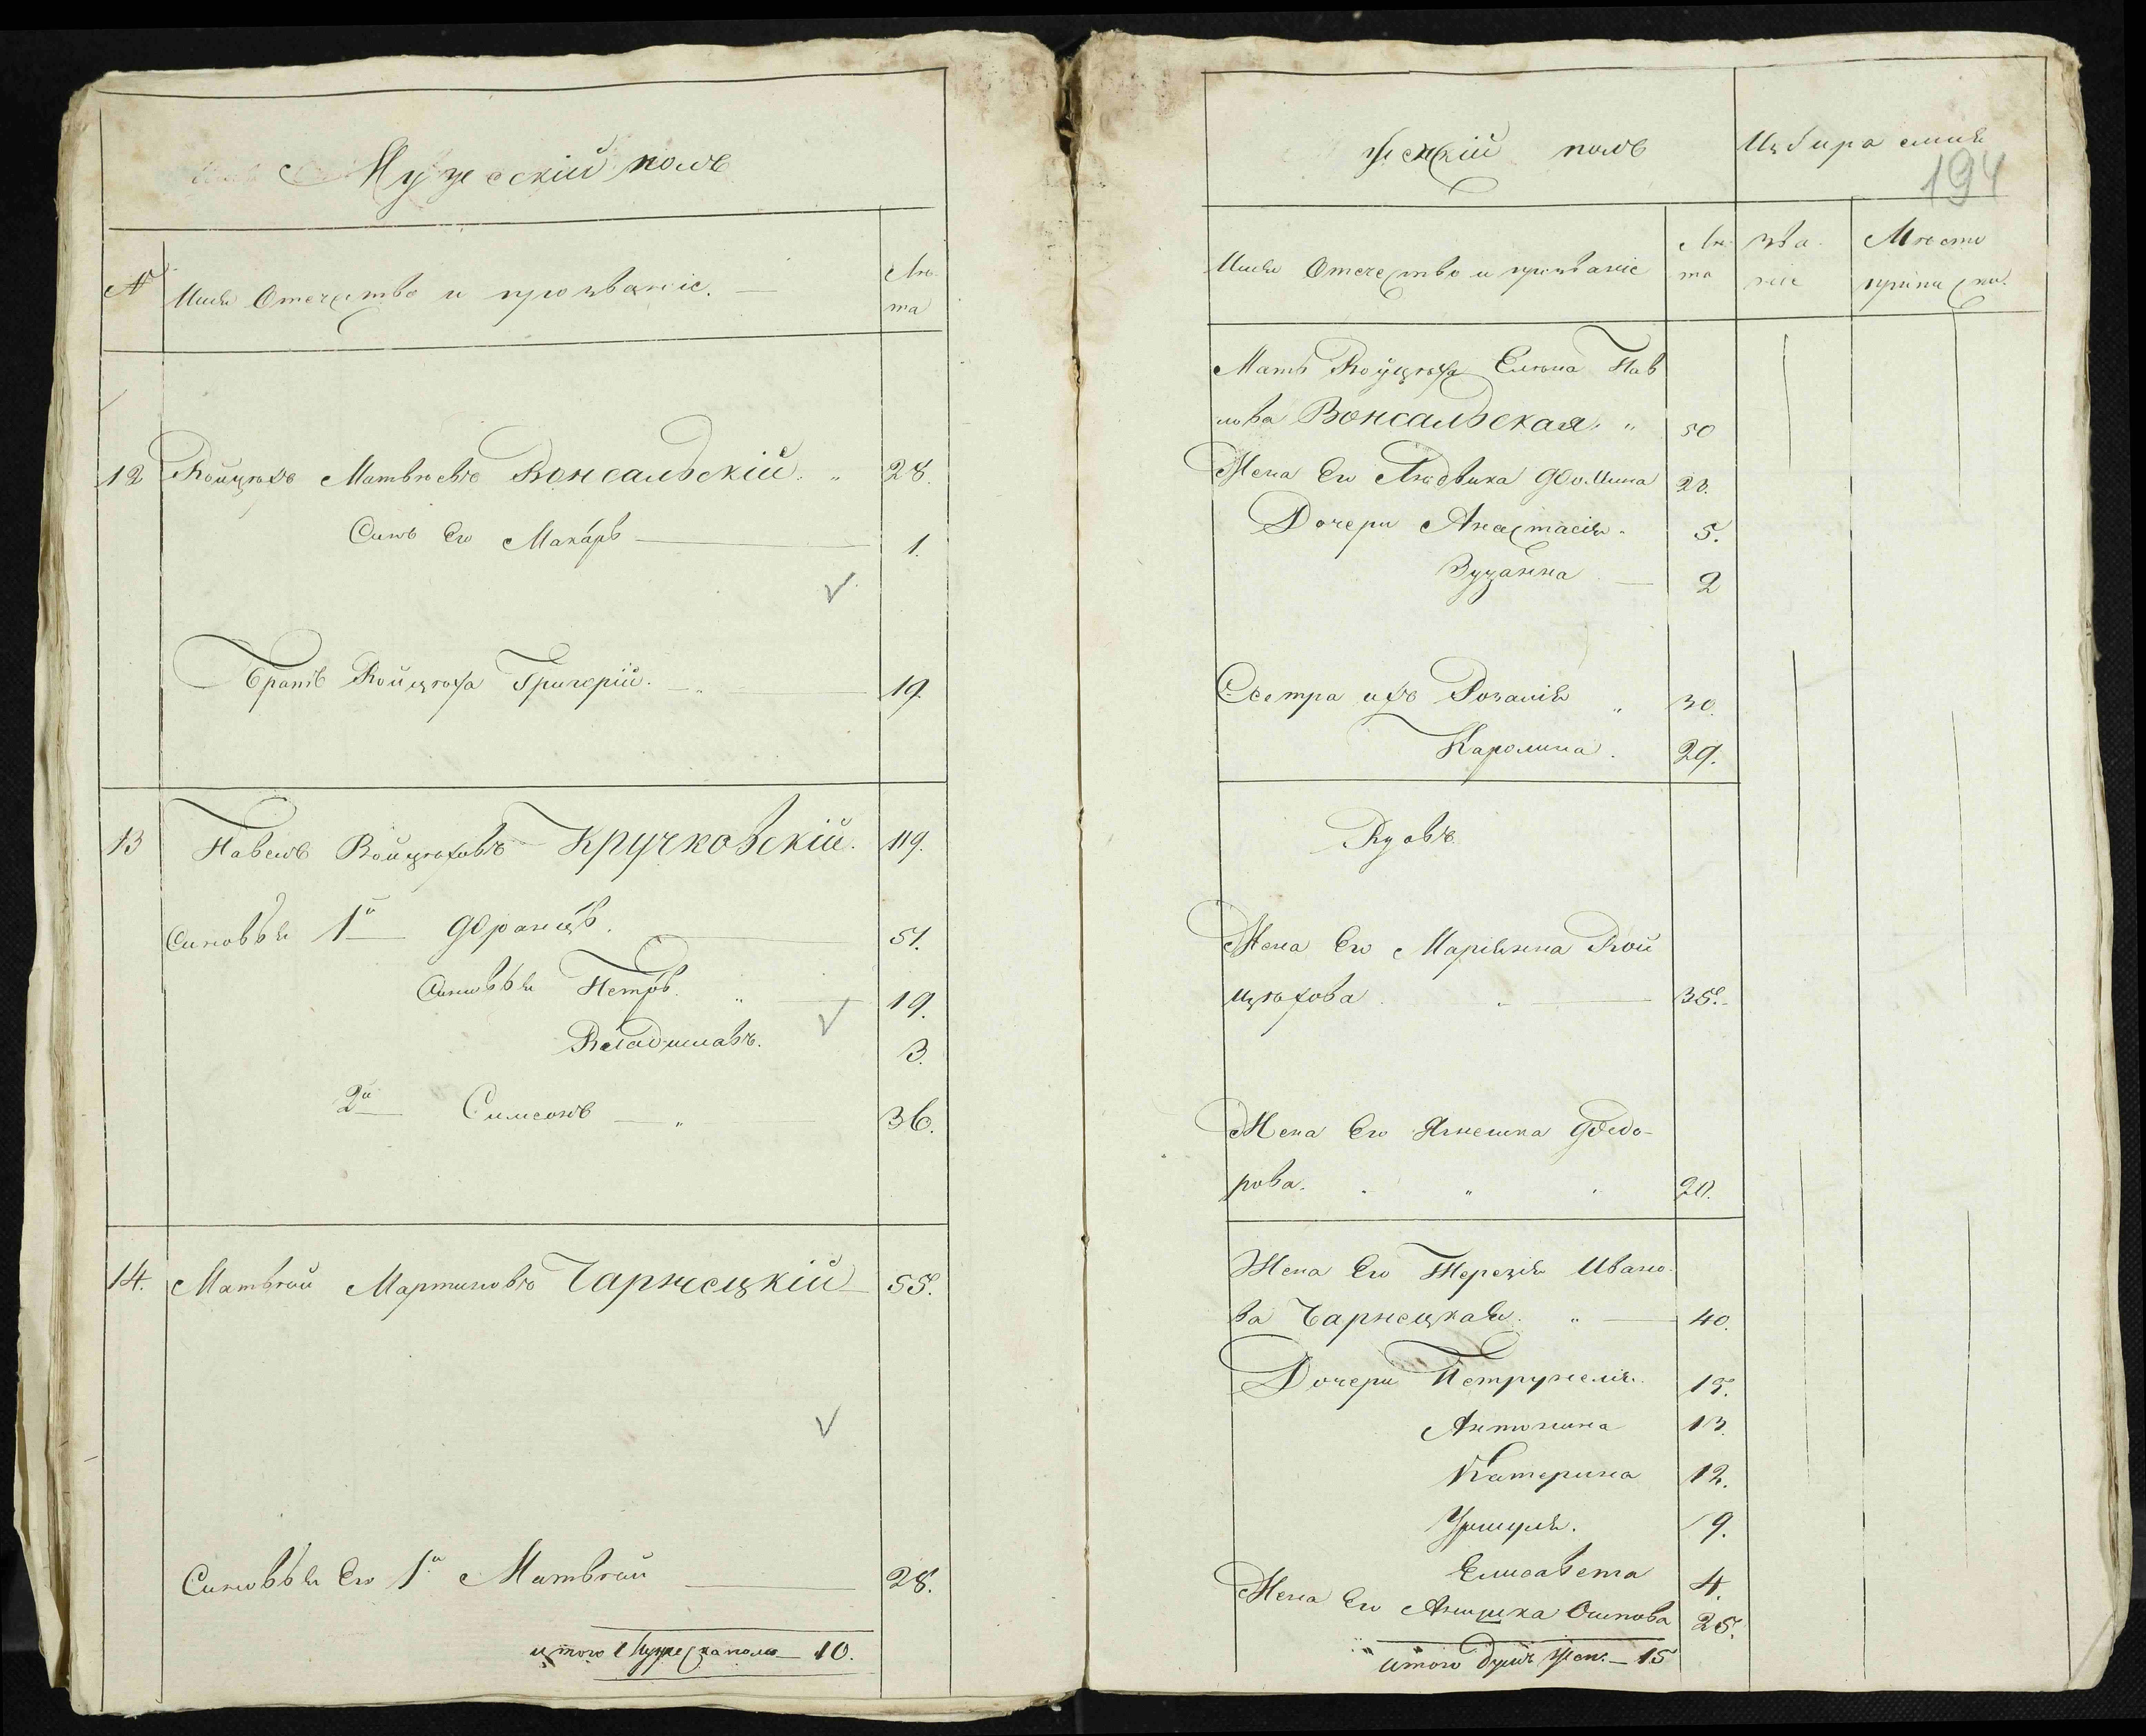 Мужескій полъ
№ Имя Отчество и прозваніе.
Лѣ-
та
12 Войцѣхъ Матвѣевъ Вонсальскій. 28.
Сынъ Его Макаръ 1.
Братъ Войцѣха Григорій. 19.
13 Павелъ Войцѣховъ Кручковскій. 119.
Сыновья 1й Францъ. 51.
Сыновья Петръ. 19.
Владиславъ. 3.
2й Симеонъ 36.
14. Матвѣй Мартиновъ Чарнецкій 55.
Сыновья Его 1й Матвѣй 28.
итого Мужеска пола 10.
Женскій полъ
194
Имя Отчество и прозваніе
Лѣ-
та
Зва-
ніе
Мѣсто
приписки.
Мать Войцѣха Елена Пав
лова Вонсальская. 50
Жена Его Людвика Фомина 28.
Дочери Анастасія. 5.
Зузанна 2
Сестра ихъ Розалія 30.
Каролина. 29.
Вдовъ
Жена Его Маріянна Вой
цѣхова 35.
Жена Его Агнешка Федо-
рова. 20.
Жена Его Терезія Ивано-
ва Чарнецкая. 40.
Дочери Петрунеля. 15.
Антонина 13.
Катерина 12.
Уршуля. 9.
Елисавета 4.
Жена Его Осипова 25.
итого душъ жен. 15